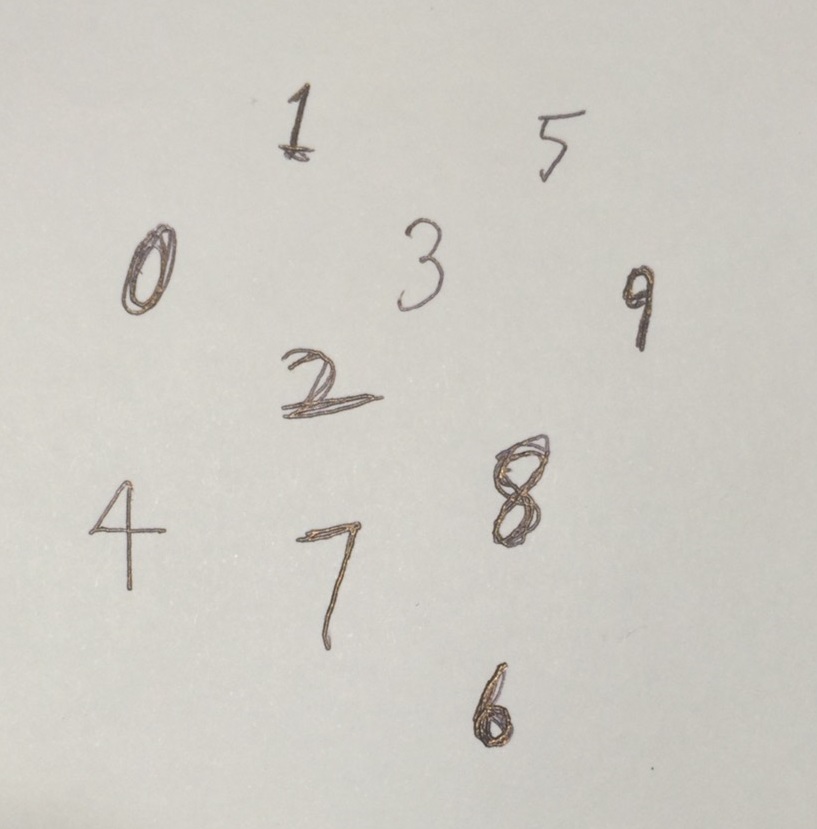 1 5
0 3 9
2
8
4 7
6